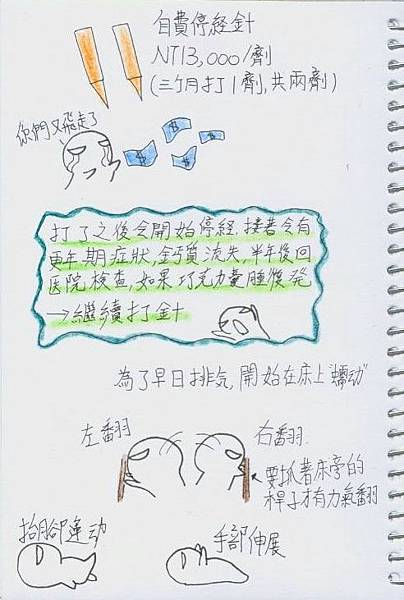 自費停経針
NT13,000/劑
(三个月打1劑,共兩劑)
你們又飛走了
$ $ $ $
打了之後会開始停経,接著会有
更年期症狀,鈣質流失,半年後回
医院検查,如果巧克力囊腫復発
→繼續打針
為了早日排気,開始在床上"蠕动"
左翻
右翻.
要抓著床旁的
桿子才有力氣翻
抬腳運动
手部伸展